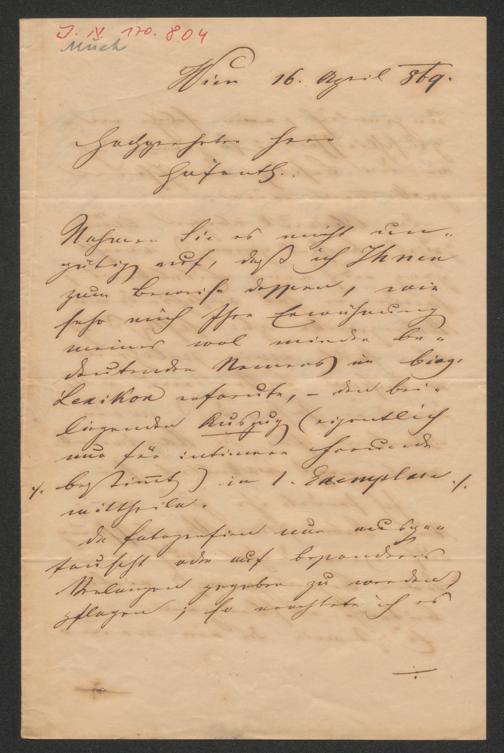 J. N 170.804
Much
Wien 16. April 869.
Hochgeehrter Herr
Nehmen Sie es nicht un-
gütig auf, daß ich Ihnen
zum Beweise dessen, wie
sehr mich Ihre Erwähnung
meines wol minder be-
deutenden Namens im biog.
Lexikon erfreute, – den bei-
liegenden Auszug (eigentlich
nur für intimere Freunde
bestimmt) in 1. Exemplare ./.
mittheile.
Da Fotografien nur ausge-
tauscht oder auf besonderes
Verlangen gegeben zu werden
pflegen, so erachtete ich es